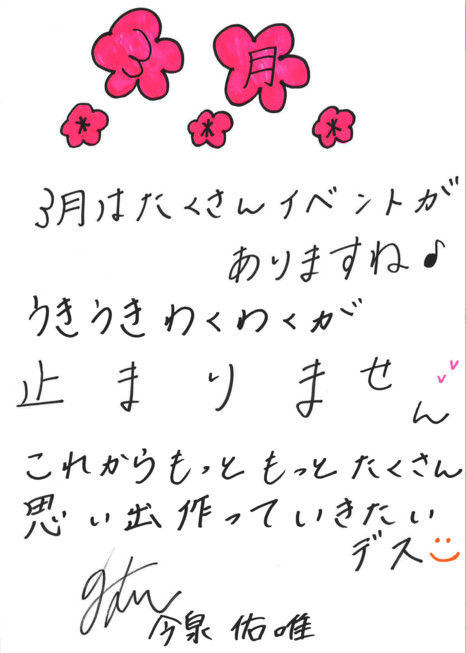 3月
3月はたくさんイベントが
ありますね♪
うきうきわくわくが
止まりません
これからもっともっとたくさん
思い出作っていきたい
デス
今泉佑唯